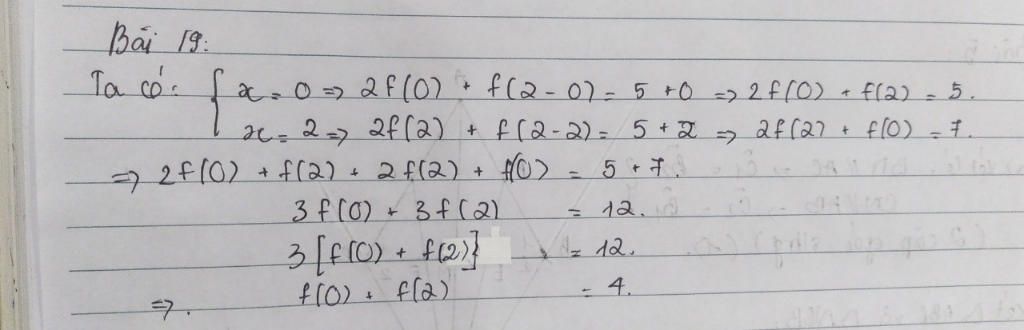 Bài 19:
Ta có: { x = 0 => 2f(0) + f(2-0) = 5 + 0 => 2f(0) + f(2) = 5.
x = 2 => 2f(2) + f(2-2) = 5 + 2 => 2f(2) + f(0) = 7.
=> 2f(0) + f(2) + 2f(2) + f(0) = 5 + 7.
3f(0) + 3f(2) = 12.
3[f(0) + f(2)] = 12.
=>. f(0) + f(2) = 4.